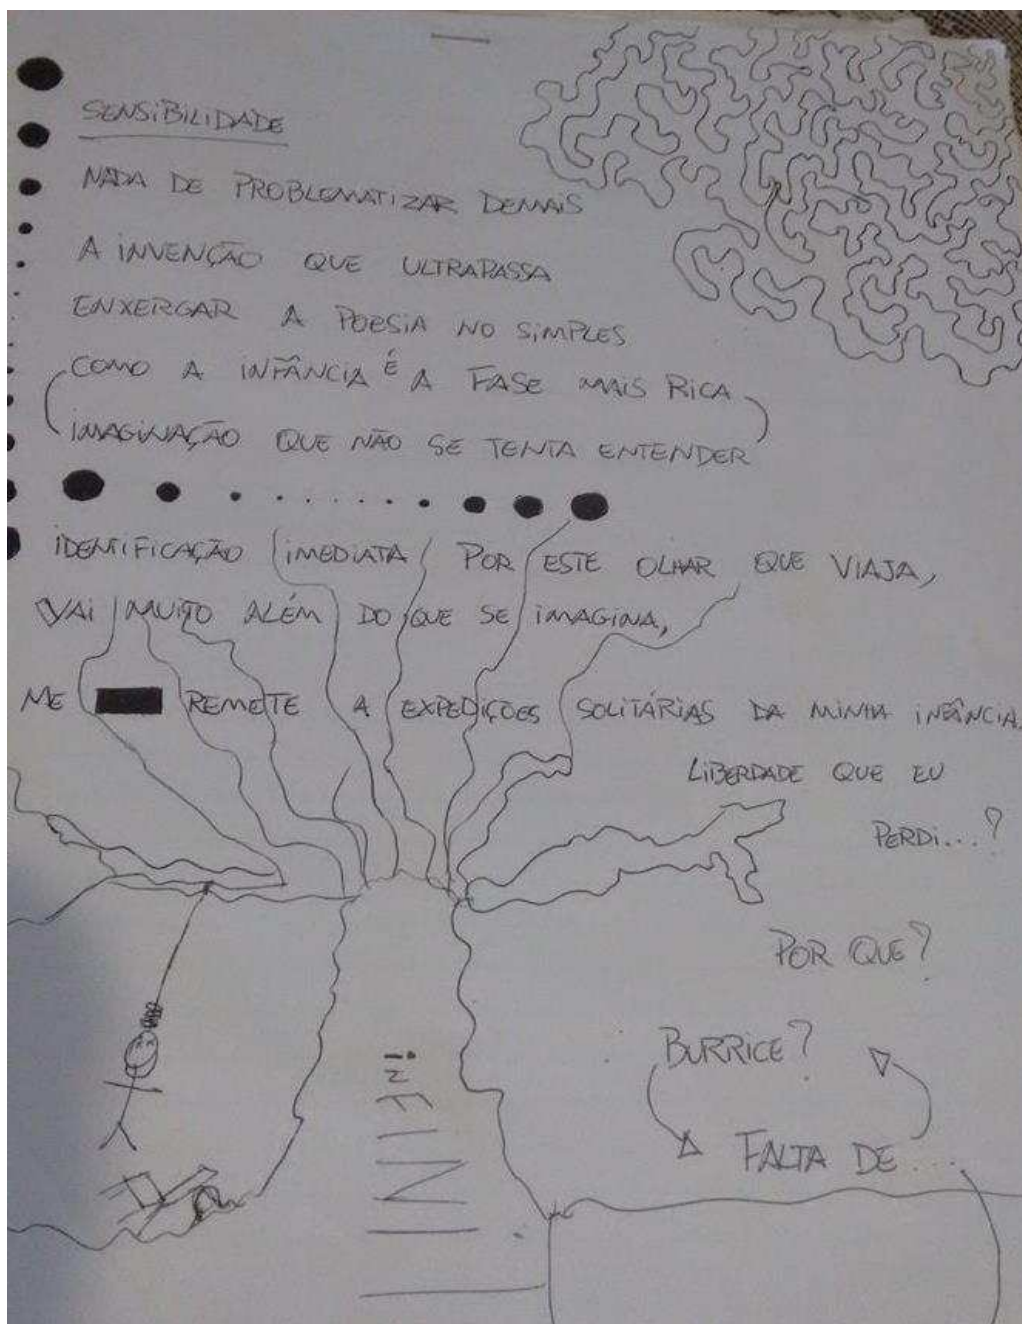 SENSIBILIDADE
NADA DE PROBLEMATIZAR DEMAIS
A INVENÇÃO QUE ULTRAPASSA
ENXERGAR A POESIA NO SIMPLES
COMO A INFÂNCIA É A FASE MAIS RICA
IMAGINAÇÃO QUE NÃO SE TENTA ENTENDER
IDENTIFICAÇÃO IMEDIATA POR ESTE OLHAR QUE VIAJA,
VAI MUITO ALÉM DO QUE SE IMAGINA,
ME REMETE A EXPEDIÇÕES SOLITÁRIAS DA MINHA INFÂNCIA.
LIBERDADE QUE EU
PERDI...?
POR QUE?
BURRICE?
FALTA DE....
INFINI